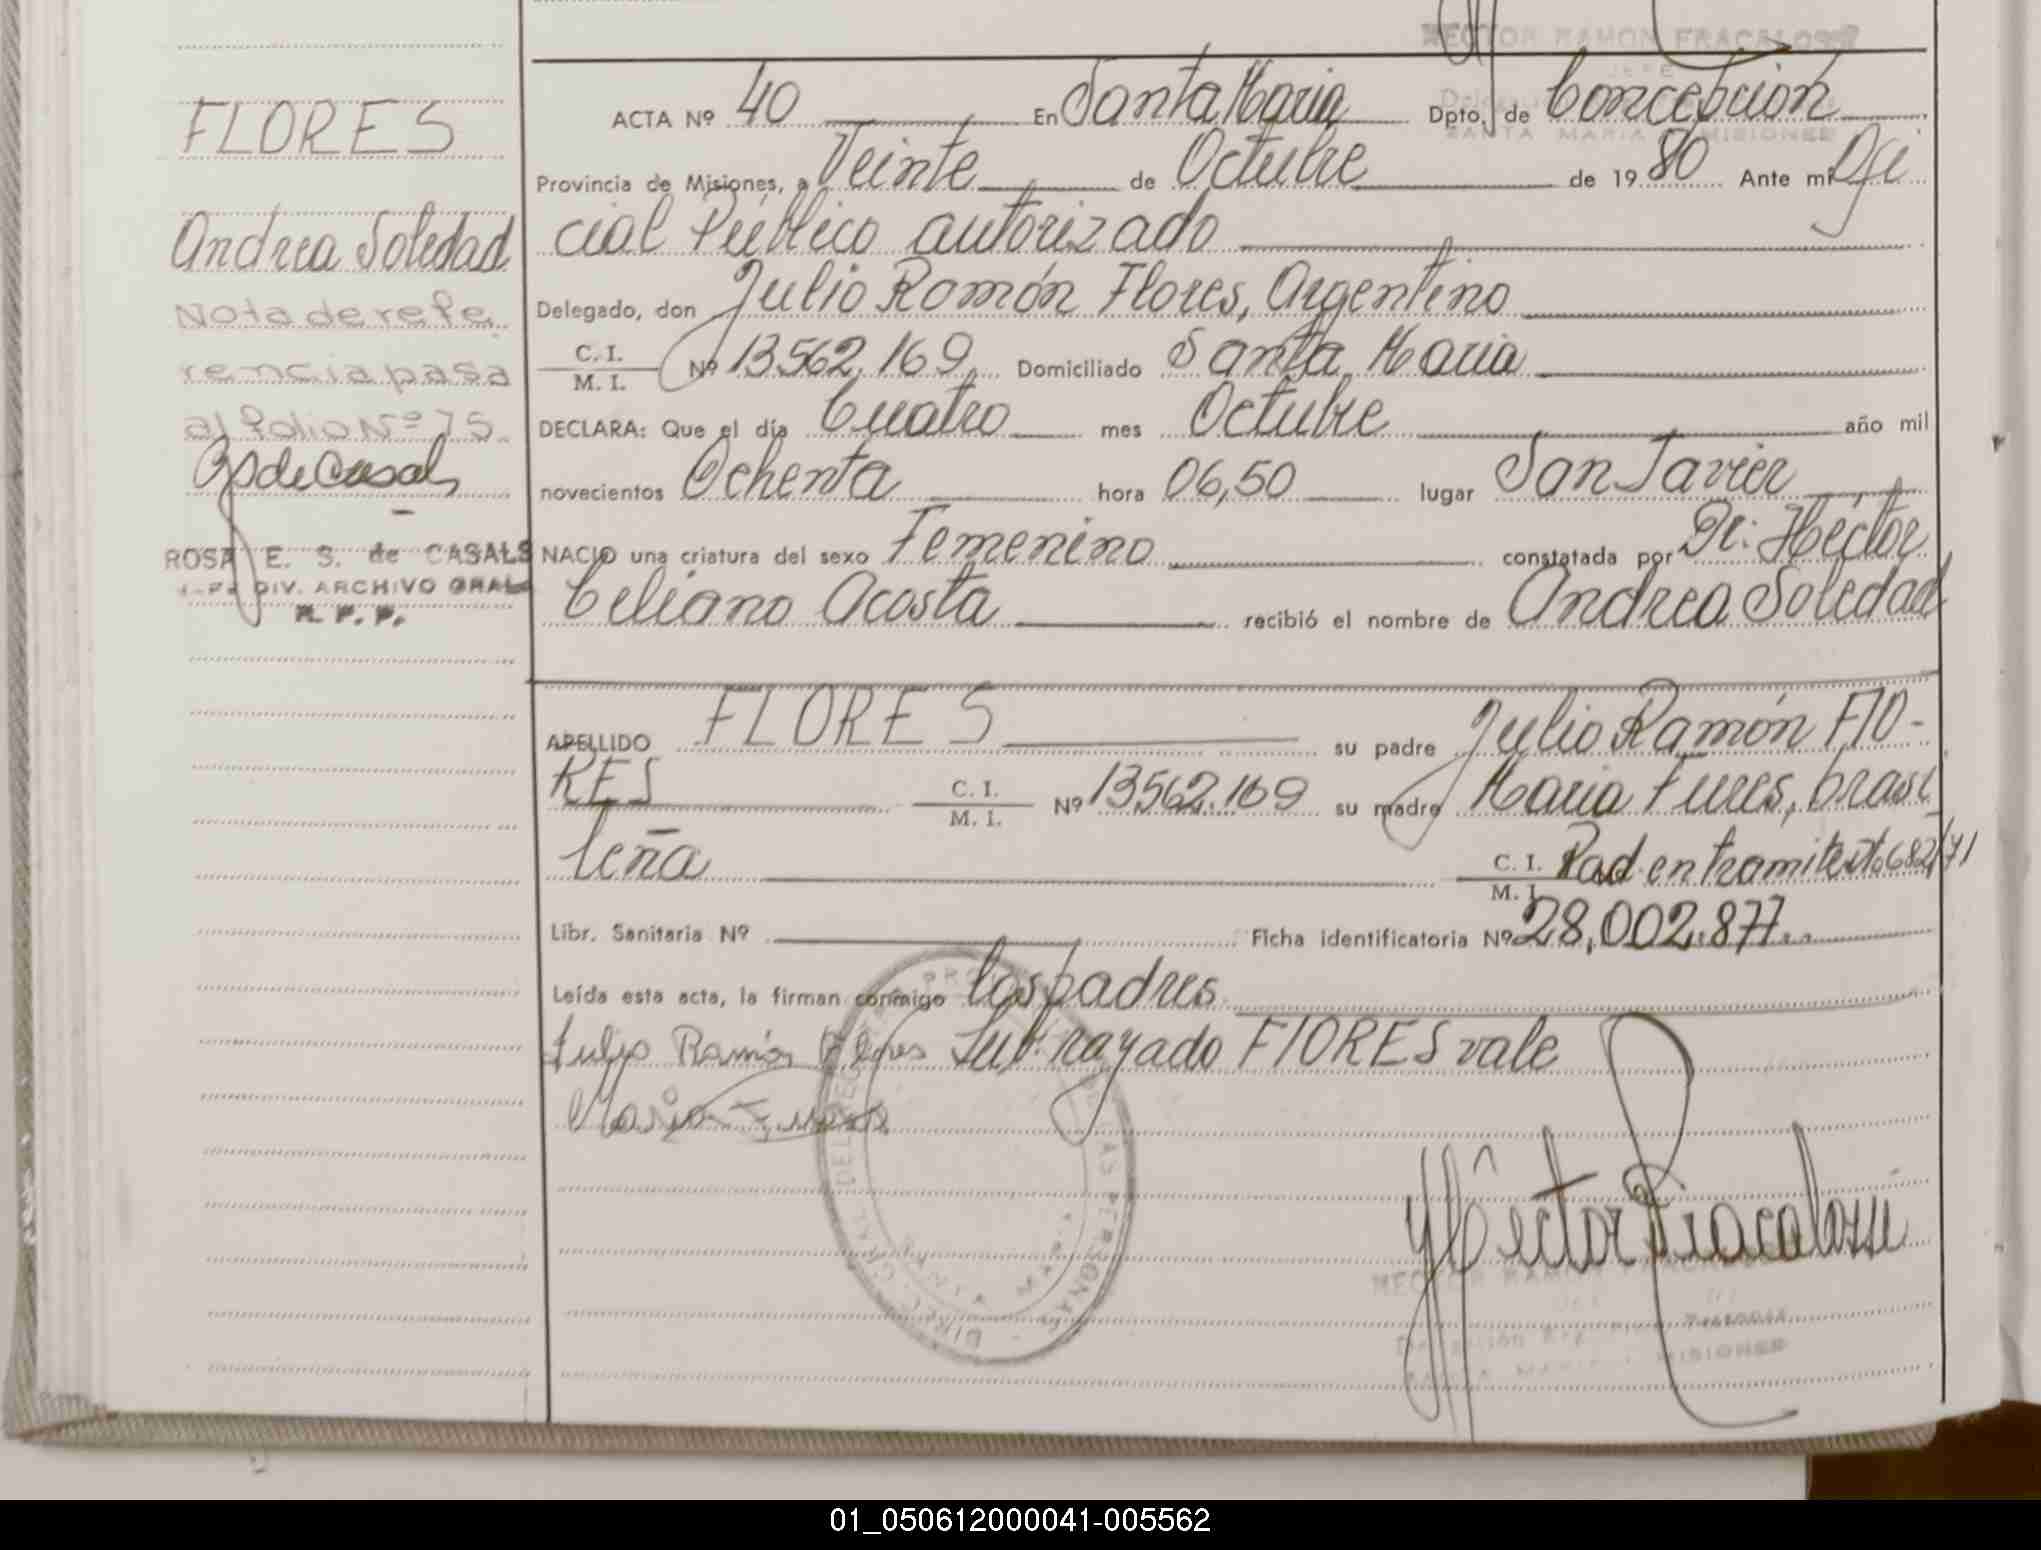 HECTOR RAMON FRACALOSSI
JEFE
SANTA MARIA MISIONES
FLORES
Andrea Soledad
Nota de refe
rencia pasa
al folio Nº 75.
ROSA E. S. de CASALS
DIV. ARCHIVO GRAL
R. P. P.
ACTA Nº 40 En Santa Maria Dpto. de Concepcion
Provincia de Misiones, a Veinte de Octubre de 1980 Ante mi Ofi
cial Público autorizado
Delegado, don Julio Ramón Flores, Argentino
C. I.
M. I. Nº 13.562.169 Domiciliado Santa Maria
DECLARA: Que el día Cuatro mes Octubre año mil
novecientos Ochenta hora 06,50 lugar San Javier
NACIO una criatura del sexo Femenino constatada por Dr: Héctor
Celiano Acosta recibió el nombre de Andrea Soledad
APELLIDO FLORES su padre Julio Ramón FLO-
RES C. I.
M. I. Nº 13.562.169 su madre Maria Funes, brasi
leña C. I.
M. I. Rad en tramite Dto 682/71
Libr. Sanitaria Nº Ficha identificatoria Nº 28,002.877
Leída esta acta, la firman conmigo los padres
Julio Ramón Flores Sub. rayado FLORES vale
Hector Fracalossi
HECTOR RAMON
SANTA MARIA MISIONES
01_050612000041-005562